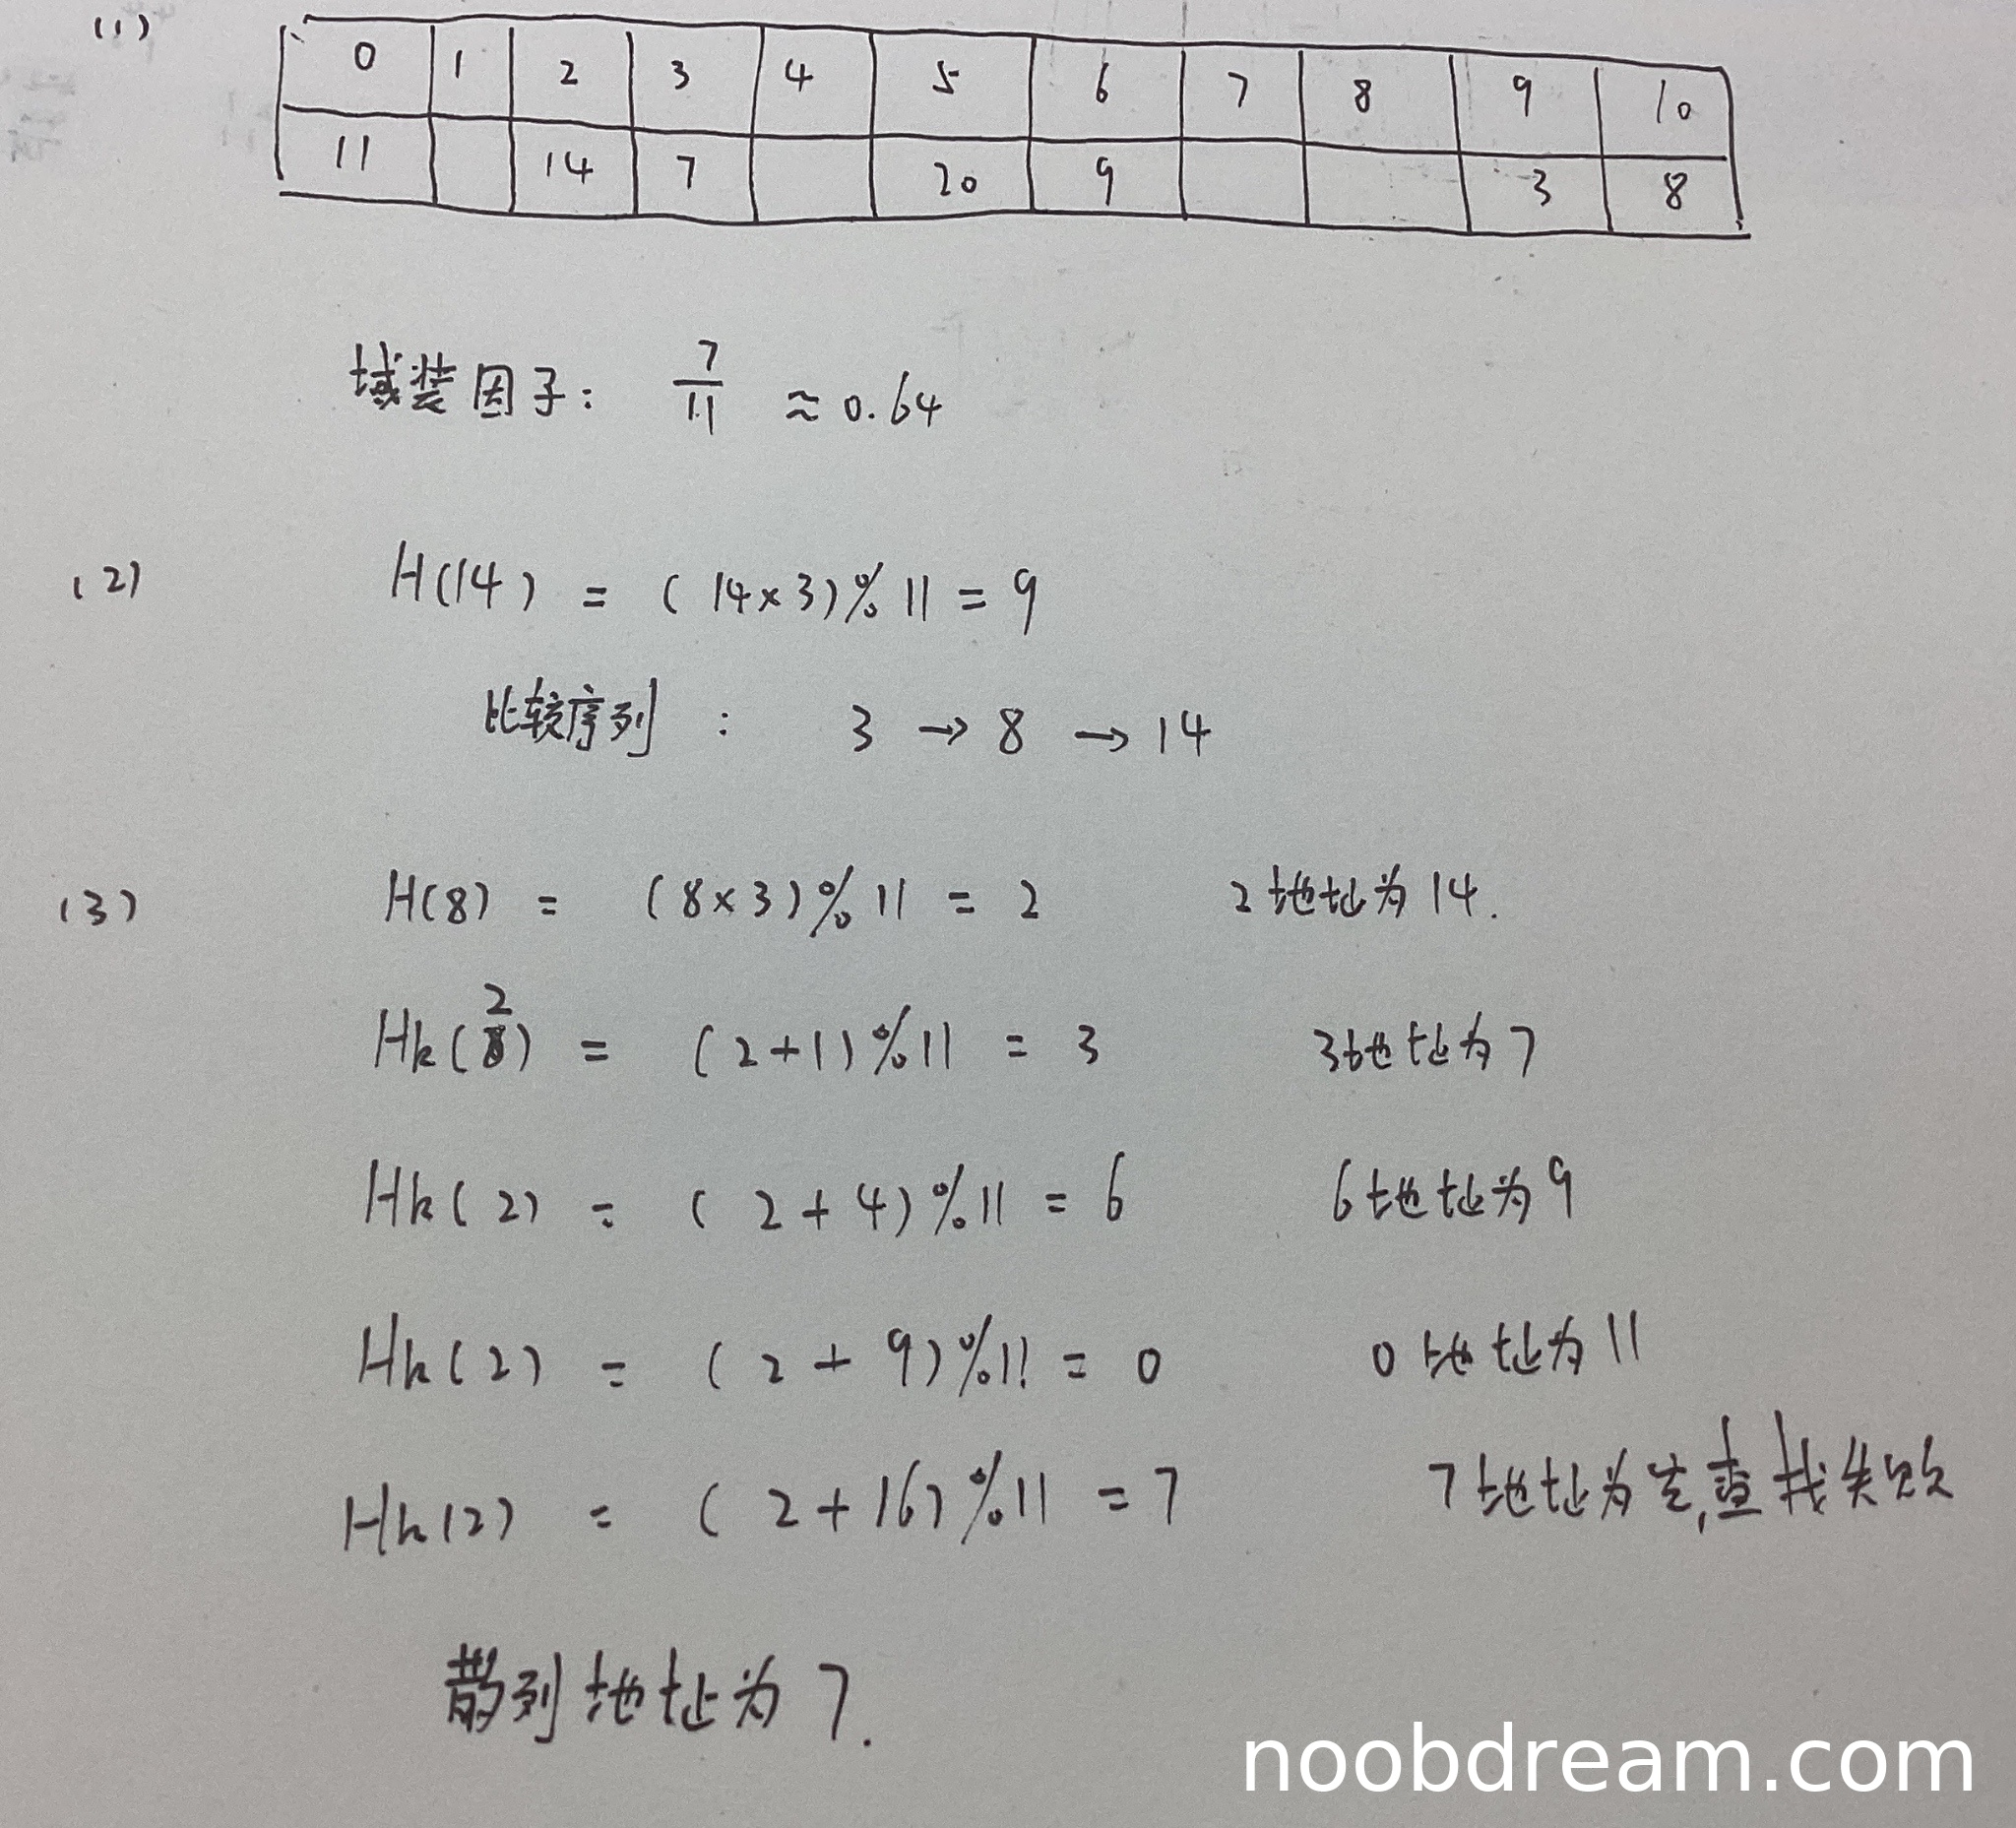 (1)
0 1 2 3 4 5 6 7 8 9 10
11 14 7 20 9 3 8
域装因子: 7/11 ≈ 0.64
(2) H(14) = (14×3)%11 = 9
比较序列 : 3 → 8 → 14
(3) H(8) = (8×3)%11 = 2 2地址为14.
Hk(2) = (2+1)%11 = 3 3地址为7
Hk(2) = (2+4)%11 = 6 6地址为9
Hk(2) = (2+9)%11 = 0 0地址为11
Hk(2) = (2+16)%11 = 7 7地址为空,查找失败
散列地址为7.
noobdream.com